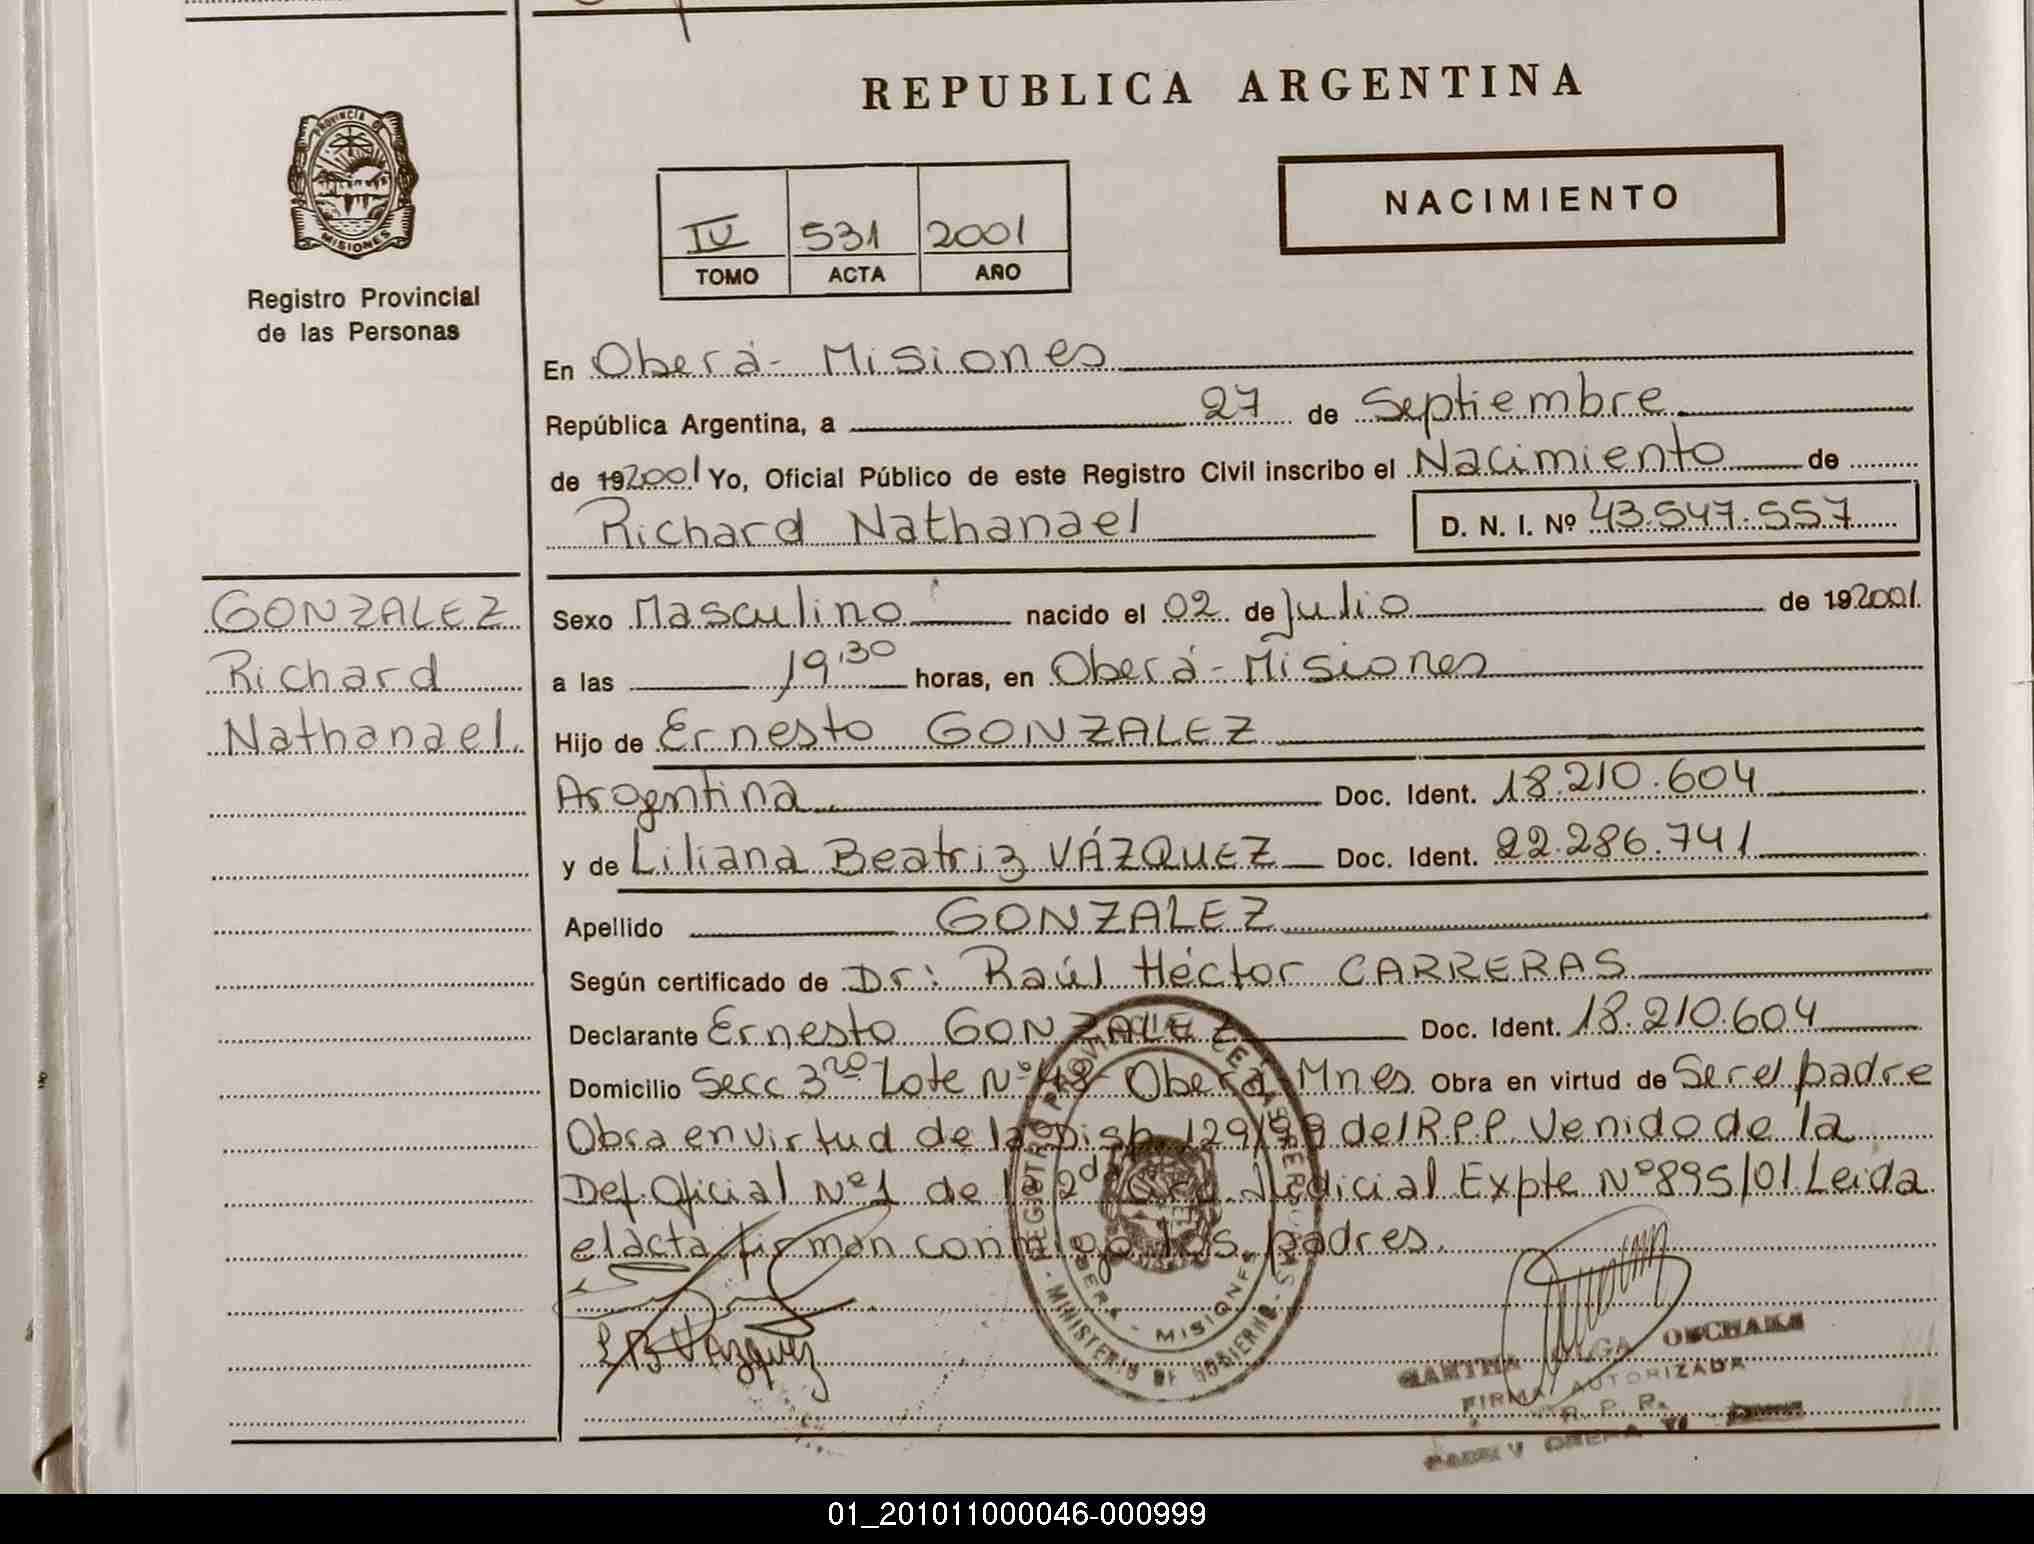 REPUBLICA ARGENTINA
PROVINCIA DE
MISIONES
Registro Provincial
de las Personas
NACIMIENTO
IV 531 2001
TOMO ACTA AÑO
En Oberá - Misiones
República Argentina, a 27 de Septiembre
de 192001 Yo, Oficial Público de este Registro Civil inscribo el Nacimiento de
Richard Nathanael D. N. I. Nº 43.547.557
GONZALEZ
Richard
Nathanael.
Sexo Masculino nacido el 02 de Julio de 192001.
a las 19:30 horas, en Oberá - Misiones
Hijo de Ernesto GONZALEZ
Argentina Doc. Ident. 18.210.604
y de Liliana Beatriz VÁZQUEZ Doc. Ident. 22.286.741
Apellido GONZALEZ
Según certificado de Dr: Raúl Héctor CARRERAS
Declarante Ernesto GONZALEZ Doc. Ident. 18.210.604
Domicilio Secc 3ra Lote Nº 48 Oberá Mnes Obra en virtud de Ser el padre
Obra en virtud de la Disp. 129/99 del R.P.P. Venido de la
Def. Oficial Nº 1 de la 2da Judicial Expte Nº 895/01 Leida
el acta firman conmigo los padres.
L B Vázquez
REGISTRO PROVINCIAL DE LAS PERSONAS
OBERA - MISIONES
MINISTERIO DE GOBIERNO
OLGA
FIRMA AUTORIZADA
R. P. P.
01_201011000046-000999